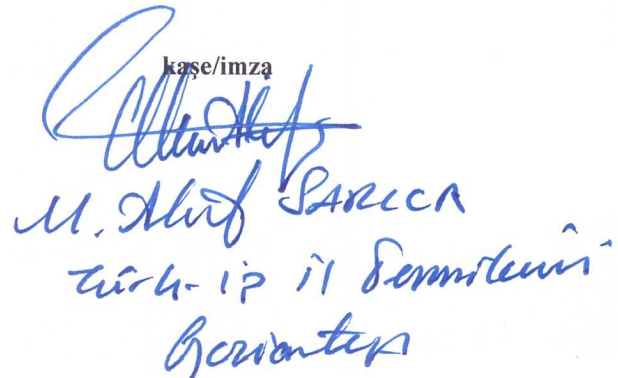 kaşe/imza
M. Akif SARICA
Türk-iş il Temsilcisi
Gaziantep